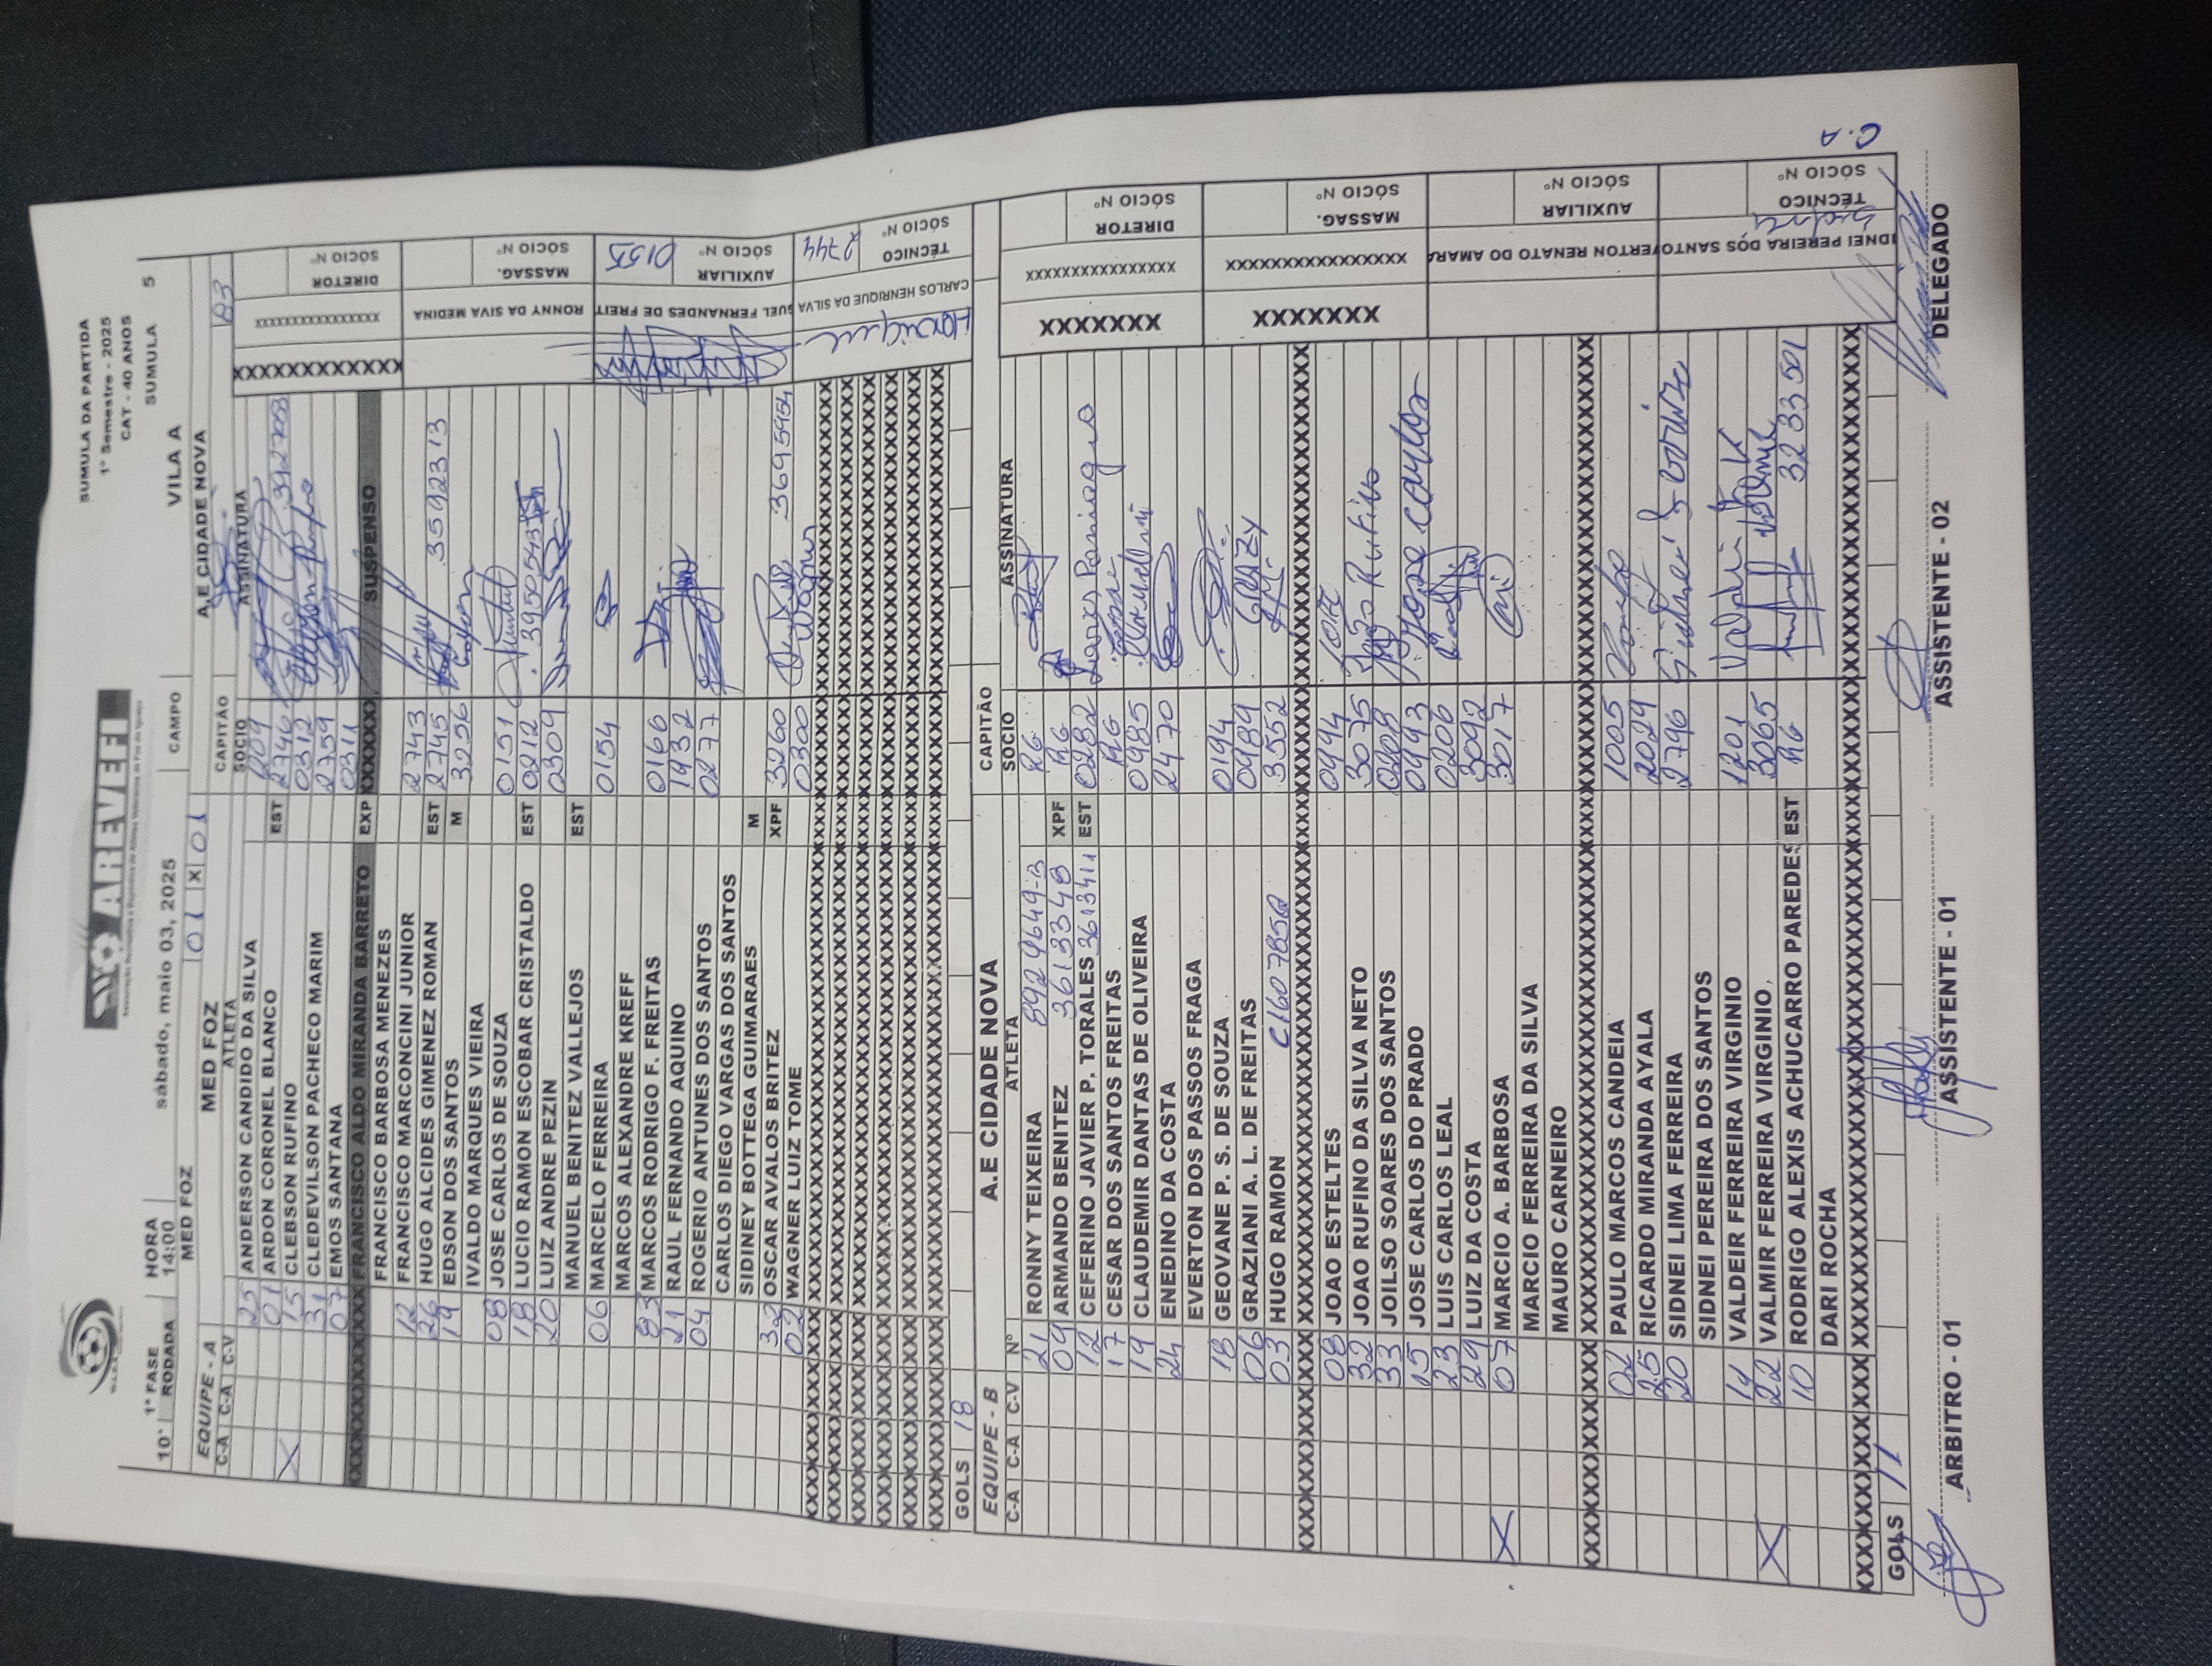 AREVEFI
SUMULA DA PARTIDA
1º Semestre - 2025
CAT - 40 ANOS
1ª FASE HORA sábado, maio 03, 2025 SUMULA 5
10ª RODADA 14:00 CAMPO VILA A
MED FOZ 01 X 01 A.E CIDADE NOVA
EQUIPE - A MED FOZ CAPITÃO 83
C-A C-A C-V ATLETA SOCIO ASSINATURA
25 ANDERSON CANDIDO DA SILVA
01 ARDON CORONEL BLANCO EST 2746
X 15 CLEBSON RUFINO 0312
31 CLEDEVILSON PACHECO MARIM 2759
07 EMOS SANTANA 0311
FRANCISCO ALDO MIRANDA BARRETO EXP XXXXXXX SUSPENSO
FRANCISCO BARBOSA MENEZES
12 FRANCISCO MARCONCINI JUNIOR 2743
26 HUGO ALCIDES GIMENEZ ROMAN EST 2745 35922313
19 EDSON DOS SANTOS M 3256
IVALDO MARQUES VIEIRA
08 JOSE CARLOS DE SOUZA 0151
18 LUCIO RAMON ESCOBAR CRISTALDO EST 0212
20 LUIZ ANDRE PEZIN 0309
MANUEL BENITEZ VALLEJOS EST
06 MARCELO FERREIRA 0154
MARCOS ALEXANDRE KREFF
83 MARCOS RODRIGO F. FREITAS 0166
21 RAUL FERNANDO AQUINO 1932
04 ROGERIO ANTUNES DOS SANTOS 0277
CARLOS DIEGO VARGAS DOS SANTOS
SIDINEY BOTTEGA GUIMARAES M
32 OSCAR AVALOS BRITEZ XPF 3260 36959454
02 WAGNER LUIZ TOME 0300 Wagner
GOLS 18
DIRETOR SÓCIO Nº
RONNY DA SIVA MEDINA MASSAG. SÓCIO Nº
GUEL FERNANDES DE FREIT AUXILIAR SÓCIO Nº 0155
Henrique CARLOS HENRIQUE DA SILVA TÉCNICO SÓCIO Nº 2744
EQUIPE - B A.E CIDADE NOVA CAPITÃO
C-A C-A C-V Nº ATLETA SOCIO ASSINATURA
21 RONNY TEIXEIRA 8924649-3 RG
09 ARMANDO BENITEZ 3613348 XPF RG
12 CEFERINO JAVIER P. TORALES 3613411 EST 0282
17 CESAR DOS SANTOS FREITAS RG
19 CLAUDEMIR DANTAS DE OLIVEIRA 0985
24 ENEDINO DA COSTA 2470
EVERTON DOS PASSOS FRAGA
18 GEOVANE P. S. DE SOUZA 0194
06 GRAZIANI A. L. DE FREITAS 0989 GRAZY
03 HUGO RAMON C1607850 3552
08 JOAO ESTELTES 0494
32 JOAO RUFINO DA SILVA NETO 3075 João Rufino
33 JOILSO SOARES DOS SANTOS 0208
15 JOSE CARLOS DO PRADO 0993 Jose Carlos
23 LUIS CARLOS LEAL 0206
29 LUIZ DA COSTA 3092
X 07 MARCIO A. BARBOSA 3017
MARCIO FERREIRA DA SILVA
MAURO CARNEIRO
02 PAULO MARCOS CANDEIA 1005
25 RICARDO MIRANDA AYALA 2029
20 SIDNEI LIMA FERREIRA 2796
SIDNEI PEREIRA DOS SANTOS
14 VALDEIR FERREIRA VIRGINIO 1201
X 22 VALMIR FERREIRA VIRGINIO 3065
10 RODRIGO ALEXIS ACHUCARRO PAREDES EST RG 3233501
DARI ROCHA
GOLS 11
XXXXXXX DIRETOR SÓCIO Nº
XXXXXXX MASSAG. SÓCIO Nº
VERTON RENATO DO AMARA AUXILIAR SÓCIO Nº
IDNEI PEREIRA DOS SANTO TÉCNICO SÓCIO Nº
C.A
ARBITRO - 01 ASSISTENTE - 01 ASSISTENTE - 02 DELEGADO